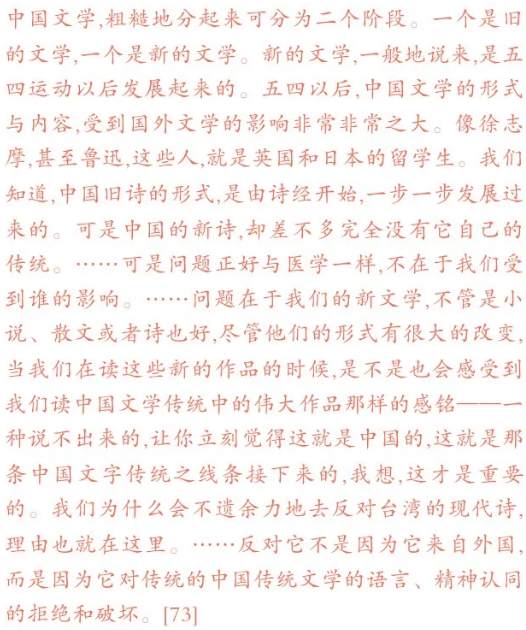 中国文学,粗糙地分起来可分为二个阶段。一个是旧
的文学,一个是新的文学。新的文学,一般地说来,是五
四运动以后发展起来的。五四以后,中国文学的形式
与内容,受到国外文学的影响非常非常之大。像徐志
摩,甚至鲁迅,这些人,就是英国和日本的留学生。我们
知道,中国旧诗的形式,是由诗经开始,一步一步发展过
来的。可是中国的新诗,却差不多完全没有它自己的
传统。……可是问题正好与医学一样,不在于我们受
到谁的影响。……问题在于我们的新文学,不管是小
说、散文或者诗也好,尽管他们的形式有很大的改变,
当我们在读这些新的作品的时候,是不是也会感受到
我们读中国文学传统中的伟大作品那样的感铭——一
种说不出来的,让你立刻觉得这就是中国的,这就是那
条中国文字传统之线条接下来的,我想,这才是重要
的。我们为什么会不遗余力地去反对台湾的现代诗,
理由也就在这里。……反对它不是因为它来自外国,
而是因为它对传统的中国传统文学的语言、精神认同
的拒绝和破坏。[73]